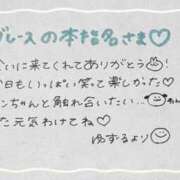 ブレースの本指名さま♡
会いに来てくれてありがとう
今日もいっぱい笑って楽しかった♡
ワンちゃんと触れ合いたい…
また元気わけてね♡
ゆずるより